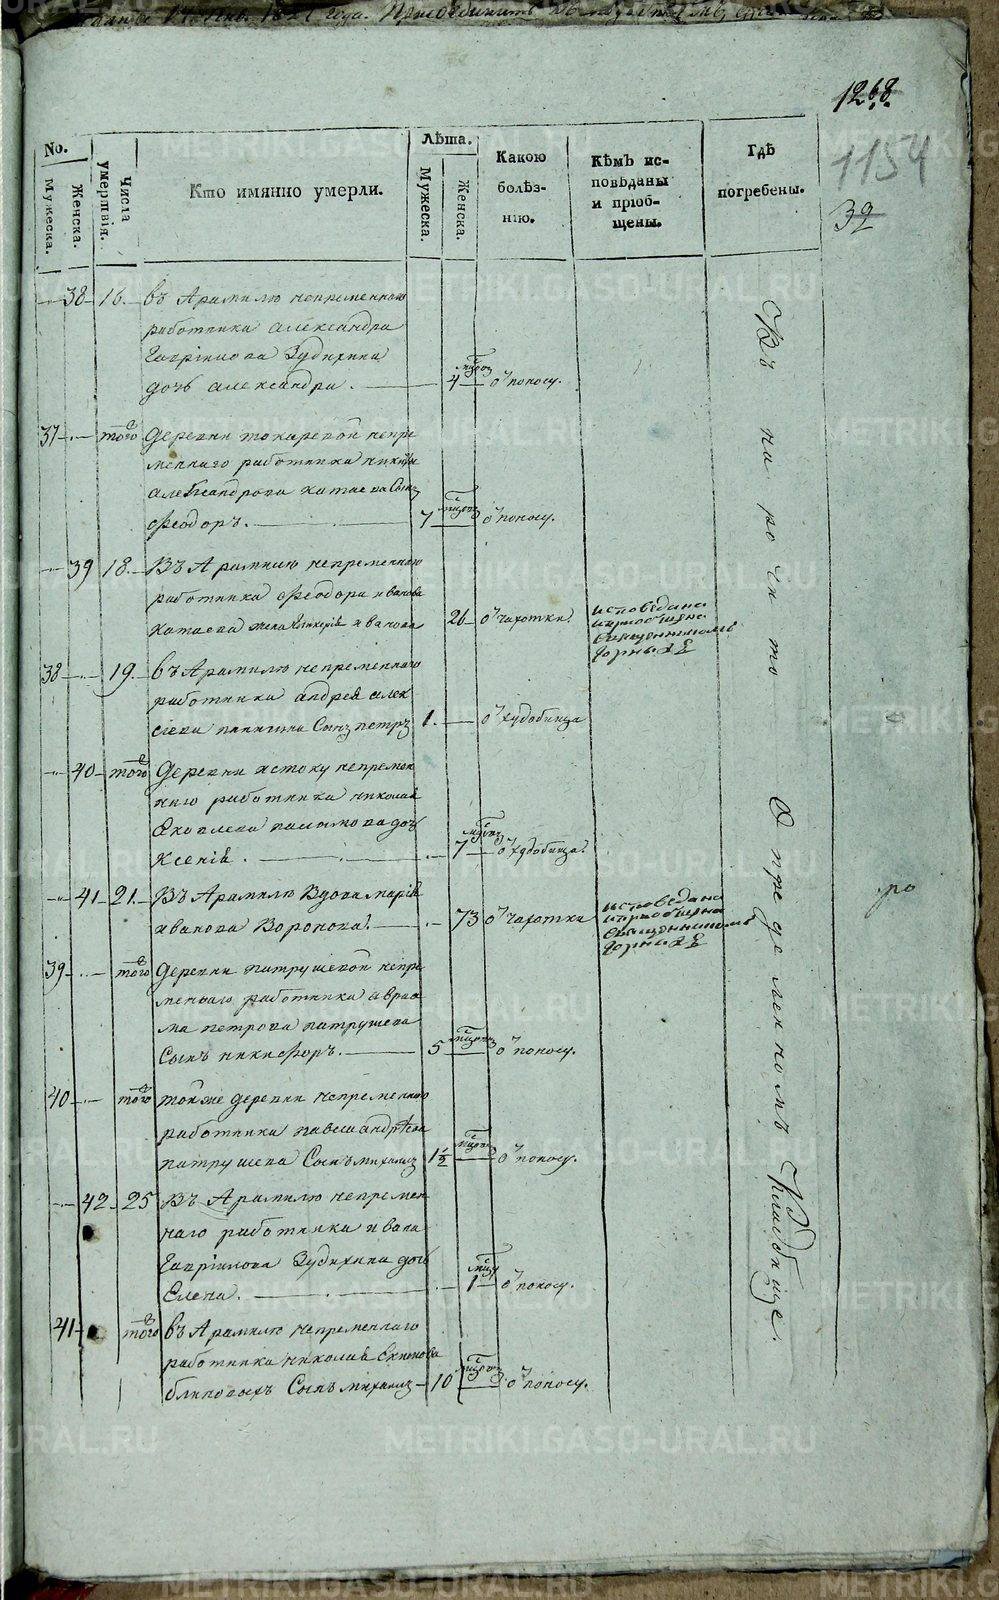 1268.
1154
39
No.
Мужеска.
Женска.
Числа умертвія.
Кто имянно умерли.
Лѣта.
Мужеска.
Женска.
Какою болѣз-нію.
Кѣмъ ис-повѣданы и пріоб-щены.
Гдѣ погребены.
38 16. въ Арамилю непременнаго
работника александра
Гаврилова Зудихина
дочь александра. 4 о' поносу.
37 того деревни токаревой непре
меннаго работника никиты
александрова катаева Сынъ
Феодоръ. 7 о' поносу.
39 18. Въ Арамилю непременнаго
работника Феодора иванова
катаева жена иванова 26 о' чахотки.
исповедана
и приобщена
священникомъ
38 19. въ Арамилю непременнаго
работника андрея алек
сіева Сынъ петръ 1. о' худобища
40 того деревни истоку непремен
наго работника николая
Яковлева дочь
Ксенія. 7 о' худобища.
41 21. Въ Арамилю Вдова марія
иванова Воронова. 73 о' чахотки
исповедана
и приобщена
священникомъ
39 того деревни патрушевой непре
меннаго работника авраа
ма петрова патрушева
Сынъ никифоръ. 5 о' поносу.
40 того тойже деревни непременнаго
работника павла андреева
патрушева Сынъ михаилъ 1½ о' поносу.
42 25 Въ Арамилю непремен
наго работника ивана
Гаврилова Зудихина дочь
Елена. 1 о' поносу.
41 того въ Арамилю непременнаго
работника николая
блиновыхъ Сынъ михаилъ 10 о' поносу.
На рочито Определенномъ Кладбище.
ро
METRIKI.GASO-URAL.RU